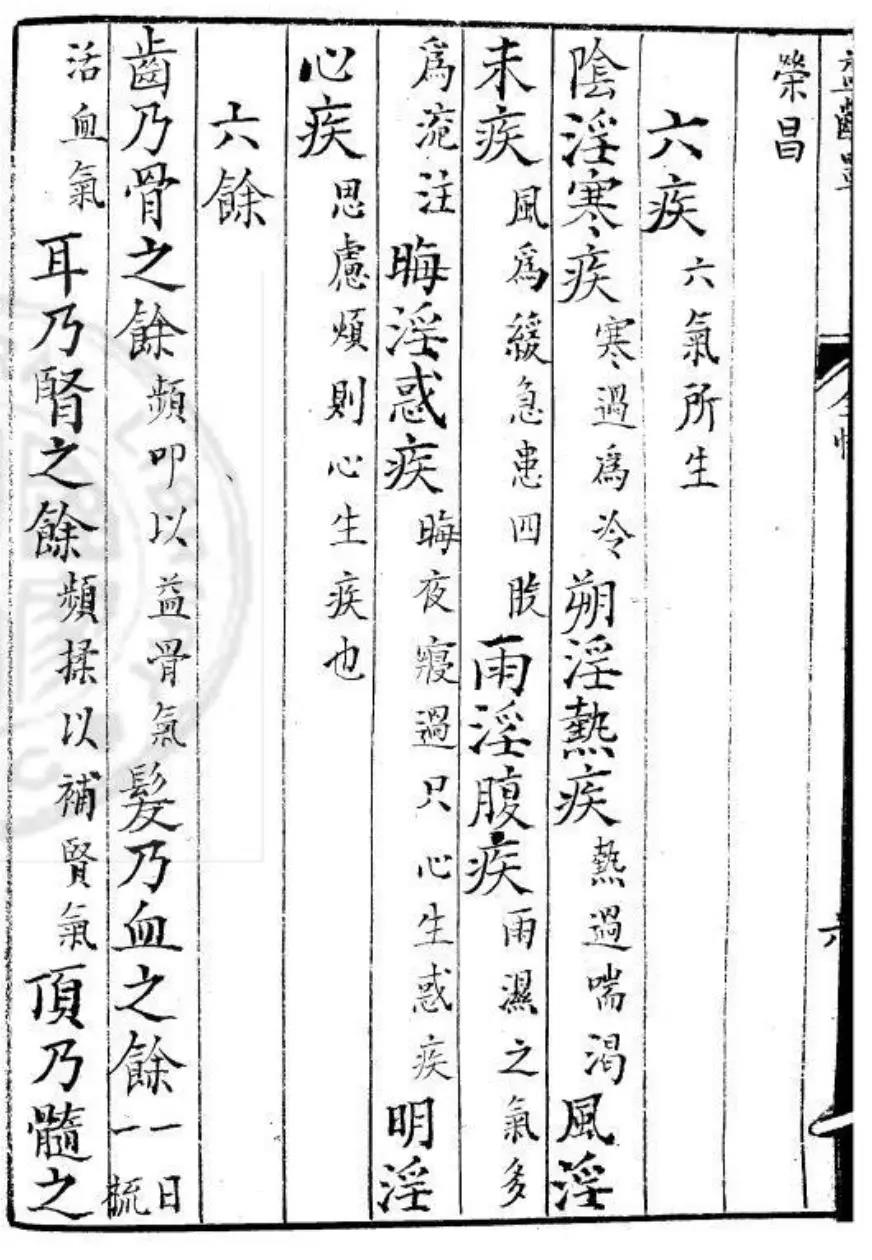 榮昌
六疾六氣所生
陰淫寒疾寒過爲冷朔淫熱疾熱過喘渴風淫
末疾風爲緩急患四肢雨淫腹疾雨濕之氣多
爲流注晦淫惑疾晦夜寢過只心生惑疾明淫
心疾思慮煩則心生疾也
六餘
齒乃骨之餘頻叩以益骨氣髮乃血之餘一日一梳
活血氣耳乃腎之餘頻揉以補賢氣頂乃髓之